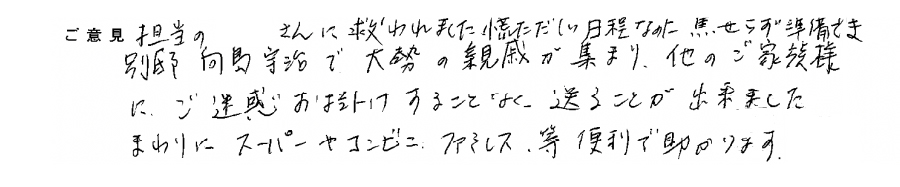 ご意見 担当の さんに救われました慌ただしい日程なのに焦せらず準備でき
別邸 向島宇治で大勢の親戚が集まり、他のご家族様
に、ご迷惑お掛けすることなく、送ることが出来ました
まわりにスーパーやコンビニ、ファミレス、等便利で助かります。